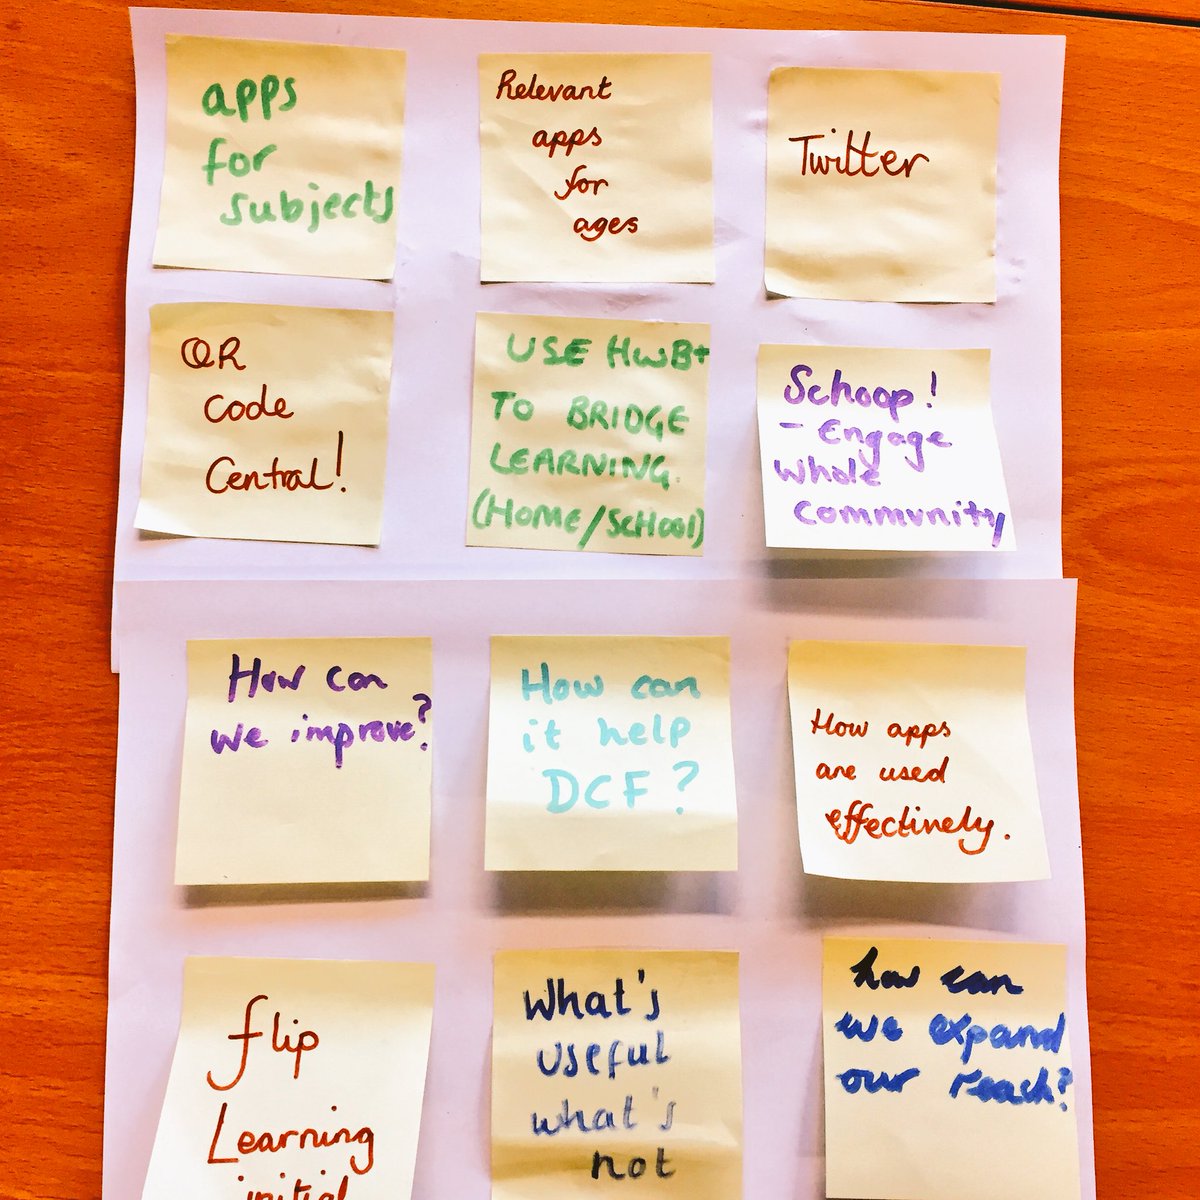 apps
for
subjects
Relevant
apps
for
ages
Twitter
QR
Code
Central!
USE HWB+
TO BRIDGE
LEARNING.
(HOME/SCHOOL)
Schoop!
- Engage
Whole
community
How can
we improve?
How can
it help
DCF?
How apps
are used
effectively.
flip
Learning
initial
What's
useful
what's
not
how can
we expand
our reach?